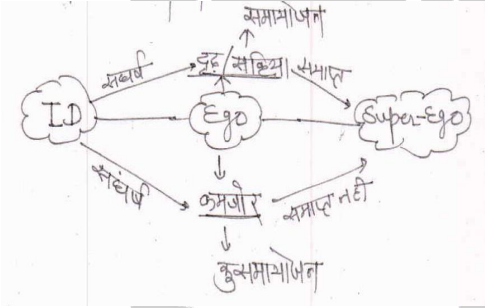 समायोजन
संघर्ष दृढ़/सक्रिय समाप्त
ID Ego Super-Ego
संघर्ष कमजोर समाप्त नही
कुसमायोजन